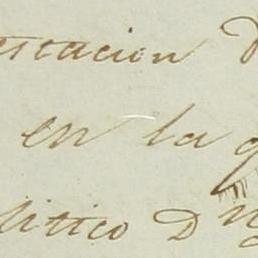 estacion D
en la q
litico D